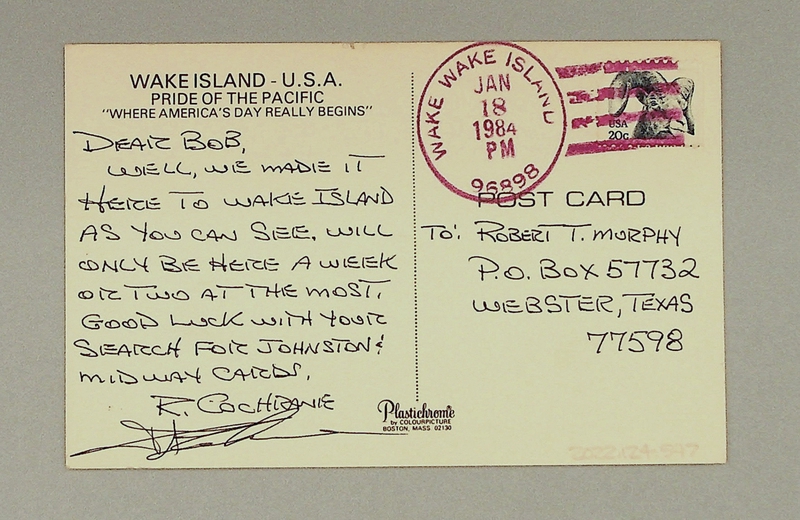 WAKE ISLAND - U.S.A.
PRIDE OF THE PACIFIC
"WHERE AMERICA'S DAY REALLY BEGINS"
DEAR BOB,
WELL, WE MADE IT
HERE TO WAKE ISLAND
AS YOU CAN SEE. WILL
ONLY BE HERE A WEEK
OR TWO AT THE MOST.
GOOD LUCK WITH YOUR
SEARCH FOR JOHNSTON &
MIDWAY CARDS.
R. COCHRANE
Plastichrome
by COLOURPICTURE
BOSTON, MASS 02130
WAKE WAKE ISLAND
JAN
18
1984
PM
96898
USA
20c
POST CARD
TO: ROBERT T. MURPHY
P.O. BOX 57732
WEBSTER, TEXAS
77598